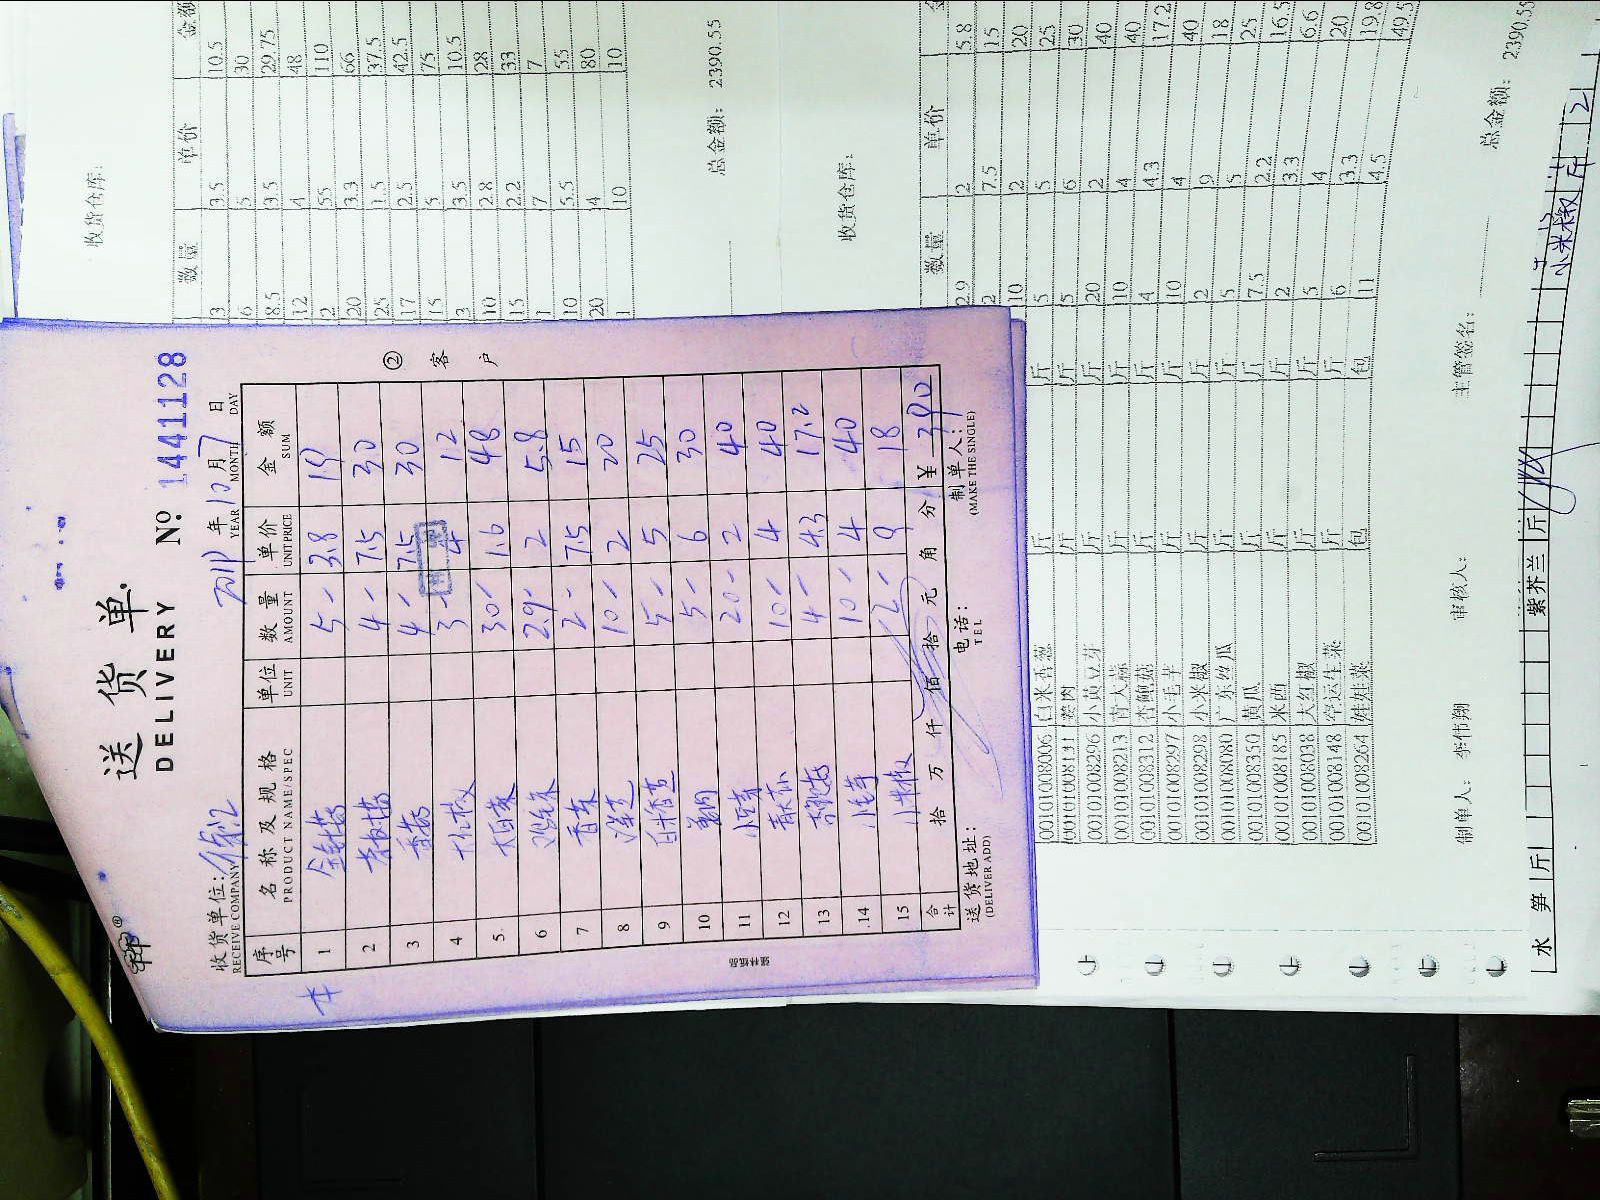 送 货 单
DELIVERY
№ 1441128
收货单位:
RECEIVE COMPANY
年 10 月 7 日
YEAR MONTH DAY
序号 名称及规格 单位 数量 单价 金额
PRODUCT NAME/SPEC UNIT AMOUNT UNIT PRICE SUM
1 5 3.8 19
2 4 7.5 30
3 香菇 4 7.5 30
4 大红椒 3 4 12
5 大白菜 30 1.6 48
6 2.9 2 5.8
7 香菜 2 7.5 15
8 洋芝 10 2 20
9 白米香葱 5 5 25
10 姜肉 5 6 30
11 小豆芽 20 2 40
12 青大蒜 10 4 40
13 杏鲍菇 4 4.3 17.2
14 小毛芋 10 4 40
15 小米椒 2 9 18
合计 拾 万 仟 佰 拾 元 角 分 ¥ 390
送货地址: 电话: 制单人:
(DELIVER ADD) TEL (MAKE THE SINGLE)
② 客 户
收货仓库:
数量 单价 金额
3 3.5 10.5
6 5 30
8.5 3.5 29.75
12 4 48
2 55 110
20 3.3 66
25 1.5 37.5
17 2.5 42.5
15 5 75
3 3.5 10.5
10 2.8 28
15 2.2 33
1 7 7
10 5.5 55
20 4 80
1 10 10
总金额: 2390.55
收货仓库:
数量 单价 金
2.9 2 5.8
2 7.5 15
10 2 20
00101008006 白米香葱 斤 斤 5 5 25
00101008131 姜肉 斤 斤 5 6 30
00101008296 小黄豆芽 斤 斤 20 2 40
00101008213 青大蒜 斤 斤 10 4 40
00101008312 杏鲍菇 斤 斤 4 4.3 17.2
00101008297 小毛芋 斤 斤 10 4 40
00101008298 小米椒 斤 斤 2 9 18
00101008080 广东丝瓜 斤 斤 5 5 25
00101008350 黄瓜 斤 斤 7.5 2.2 16.5
00101008185 米西 斤 斤 2 3.3 6.6
00101008038 大红椒 斤 斤 5 4 20
00101008148 空运生菜 斤 斤 6 3.3 19.8
00101008264 娃娃菜 包 包 11 4.5 49.5
总金额: 2390.55
制单人: 李伟翔 审核人: 主管签名:
水 笋 斤 紫芥兰 斤 小米椒 斤 2